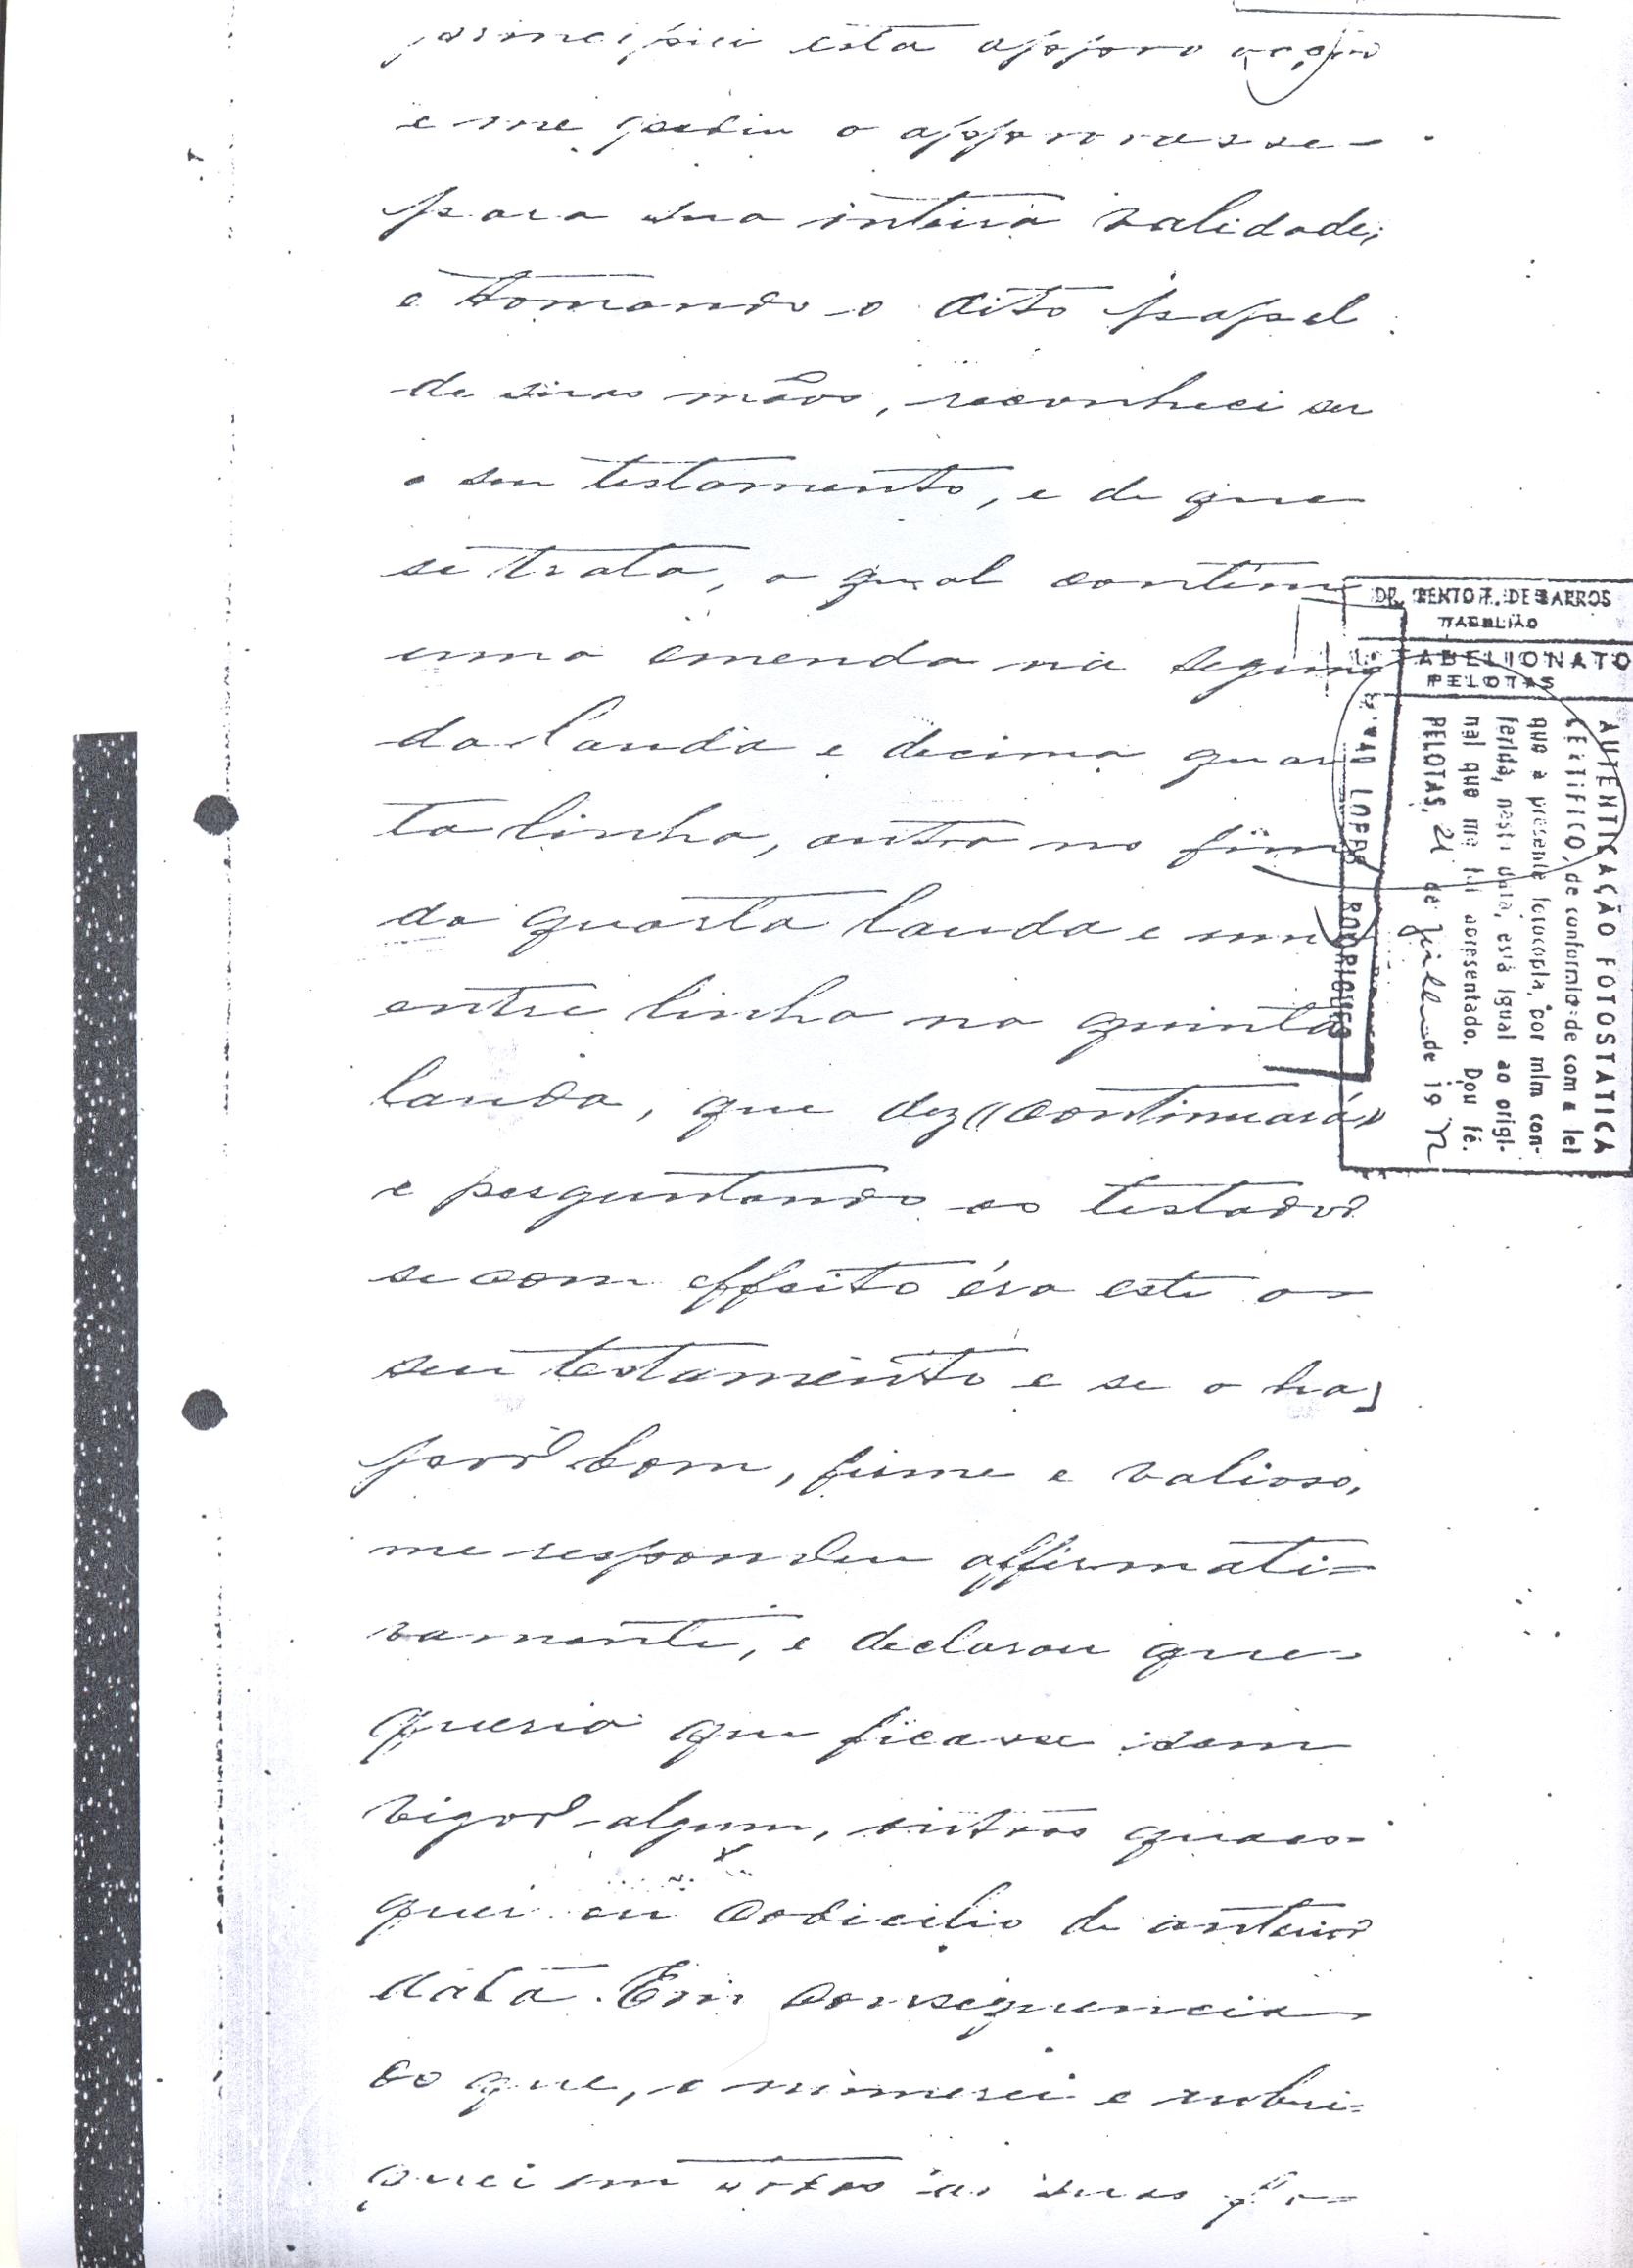 principiei esta approvação
e me pediu o approvasse
para sua inteira validade;
e tomando o dito papel
de suas mãos, reconheci ser
o seu testamento, e de que
se trata, o qual contém
uma emenda na segun
da lauda e decima quar
ta linha, outra no fim
da quarta lauda e uma
entre linha na quinta
lauda, que diz «continuará»
e perguntando ao testador
se com effeito éra este o
seu testamento e se o ha
por bom, firme e valioso,
me respondeu affirmati=
vamente, e declarou que
queria que ficasse sem
vigor algum, outros quaes-
quer ou codicilio de anterior
data. Em consequencia
do que, o numerei e rubri=
quei em todas as suas fo=
DR. BENTO F. DE BARROS
TABELIÃO
1º TABELIONATO
PELOTAS
AUTENTICAÇÃO FOTOSTATICA
CERTIFICO, de conformidade com a lei
que a presente fotocopia, por mim con-
ferida, nesta data, está igual ao origi-
nal que me foi apresentado. Dou fé.
PELOTAS, 21 de julho de 19
LOPES RODRIGUES